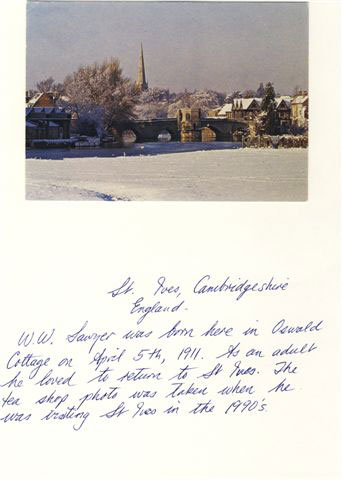 St. Ives, Cambridgeshire
England.
W.W. Sawyer was born here in Oswald
Cottage on April 5th, 1911. As an adult
he loved to return to St Ives. The
tea shop photo was taken when he
was visiting St Ives in the 1990's.